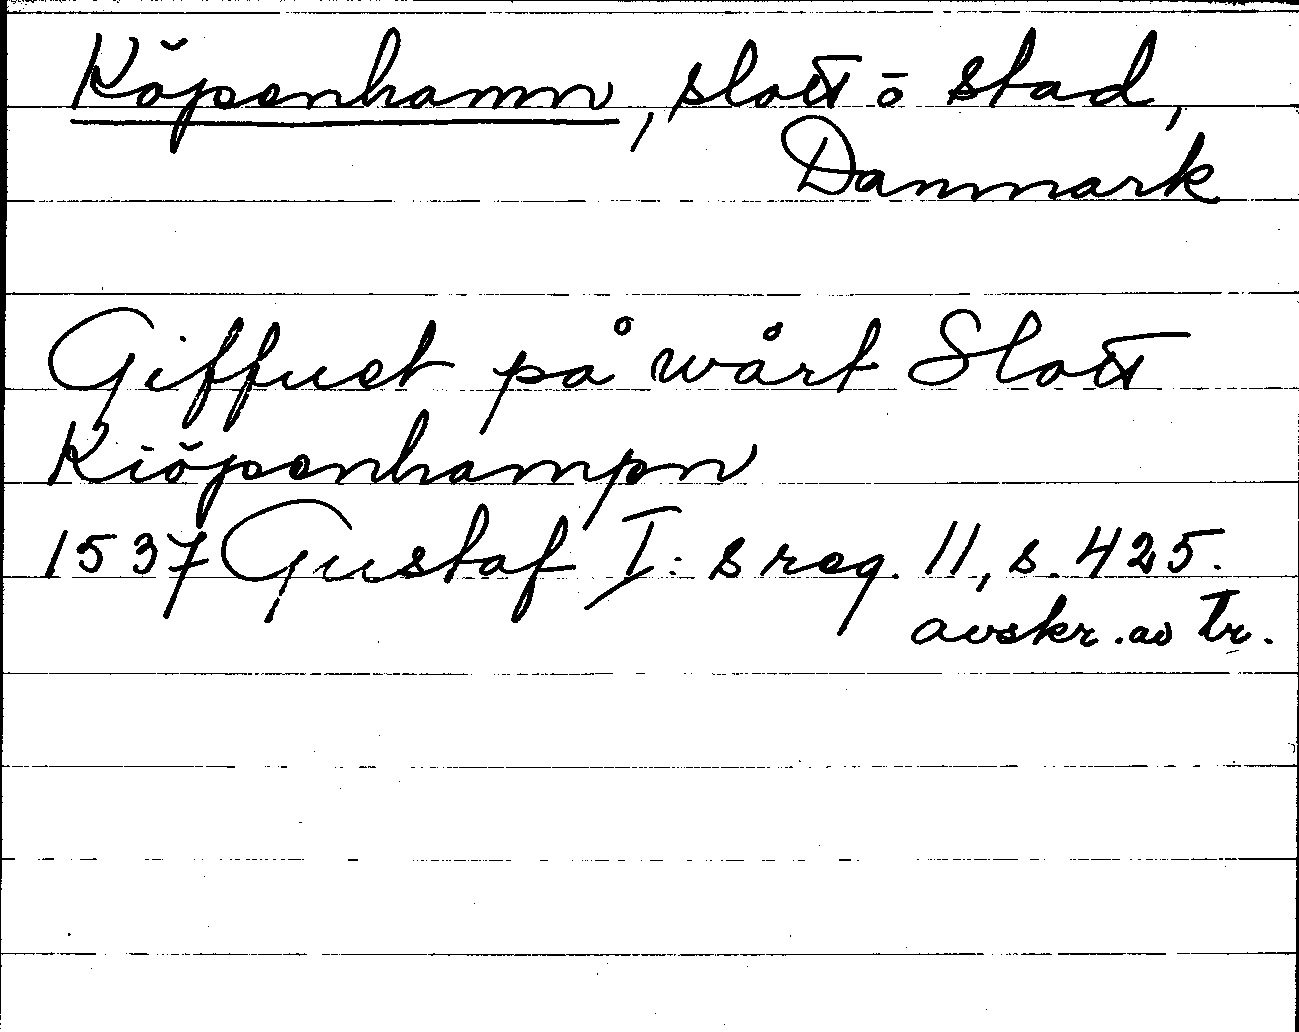 Köpenhamn, slott o stad,
Danmark
Giffuet på wårt Slott
Kiöpenhampn
1537 Gustaf I:s reg. 11, s. 425.
avskr. av tr.